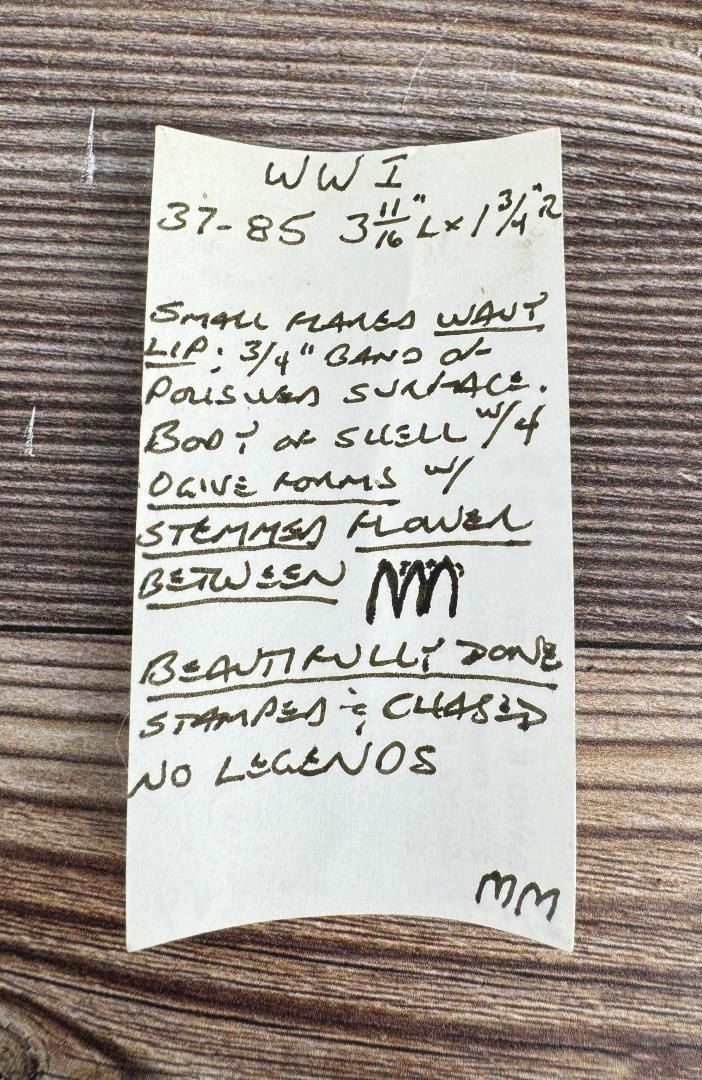 WWI
37-85 3 11/16" L x 1 3/4" R
SMALL FLARED WAVY
LIP; 3/4" BAND OF
POLISHED SURFACE.
BODY OF SHELL W/4
OGIVE FORMS W/
STEMMED FLOWER
BETWEEN
BEAUTIFULLY DONE
STAMPED & CHASED
NO LEGENDS
MM